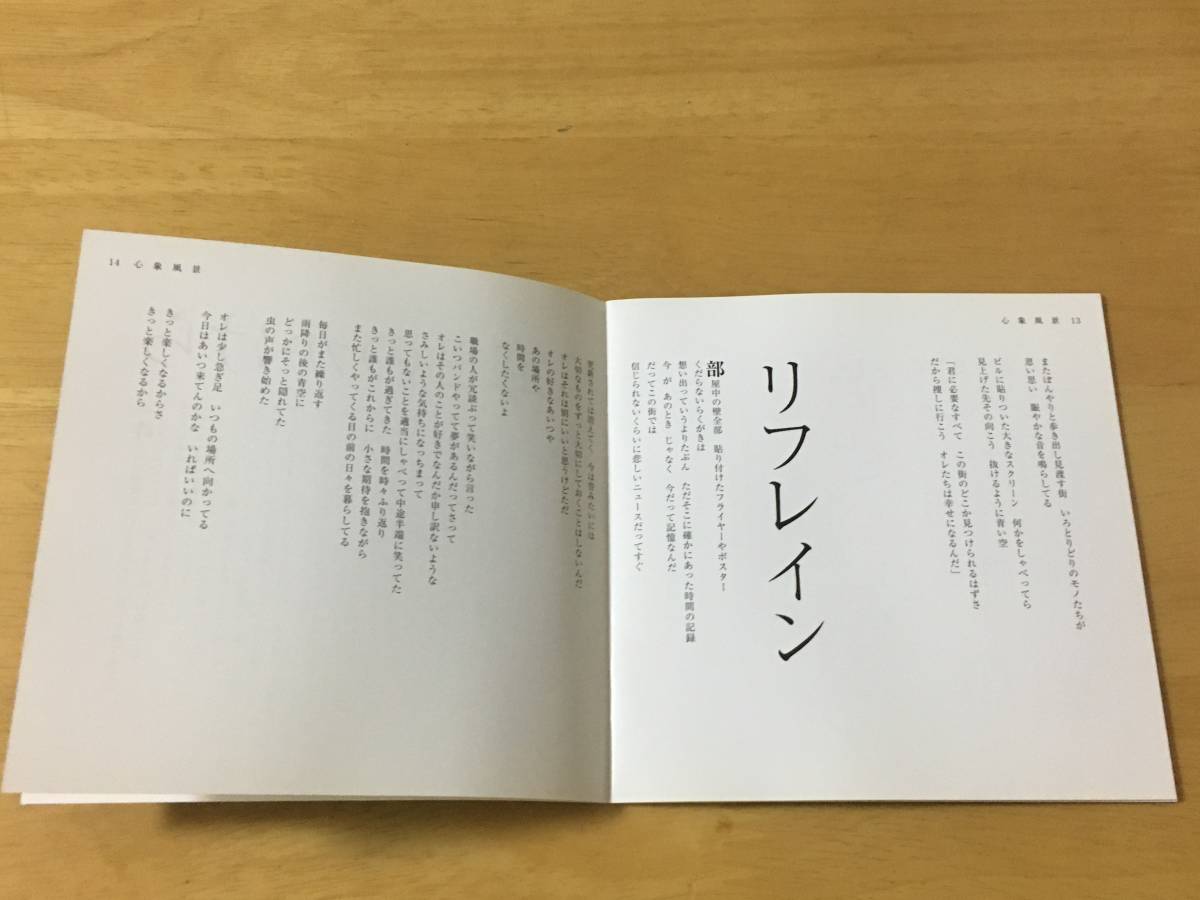 心象風景 13
またぼんやりと歩き出し見渡す街　いろとりどりのモノたちが
思い思い　賑やかな音を鳴らしてる
ビルに貼りついた大きなスクリーン　何かをしゃべってら
見上げた先その向こう　抜けるように青い空
「君に必要なすべて　この街のどこか見つけられるはずさ
だから捜しに行こう　オレたちは幸せになるんだ」
リフレイン
部屋中の壁全部　貼り付けたフライヤーやポスター
くだらないらくがきは
想い出っていうよりたぶん　ただそこに確かにあった時間の記録
今　が　あのとき　じゃなく　今だって記憶なんだ
だってこの街では
信じられないくらいに悲しいニュースだってすぐ
更新されては消えてく　今は昔みたいには
大切なものをずっと大切にしておくことはしないんだ
オレはそれは別にいいと思うけどただ
オレの好きなあいつや
あの場所や
時間を
なくしたくないよ
職場の人が冗談ぶって笑いながら言った
こいつバンドやってて夢があるんだってさって
オレはその人のことが好きでなんだか申し訳ないような
さみしいような気持ちになっちまって
思ってもないことを適当にしゃべって中途半端に笑ってた
きっと誰もが過ぎてきた　時間を時々ふり返り
きっと誰もがこれからに　小さな期待を抱きながら
また忙しくやってくる目の前の日々を暮らしてる
毎日がまた繰り返す
雨降りの後の青空に
どっかにそっと隠れてた
虫の声が響き始めた
オレは少し急ぎ足　いつもの場所へ向かってる
今日はあいつ来てんのかな　いればいいのに
きっと楽しくなるからさ
きっと楽しくなるから
14 心象風景